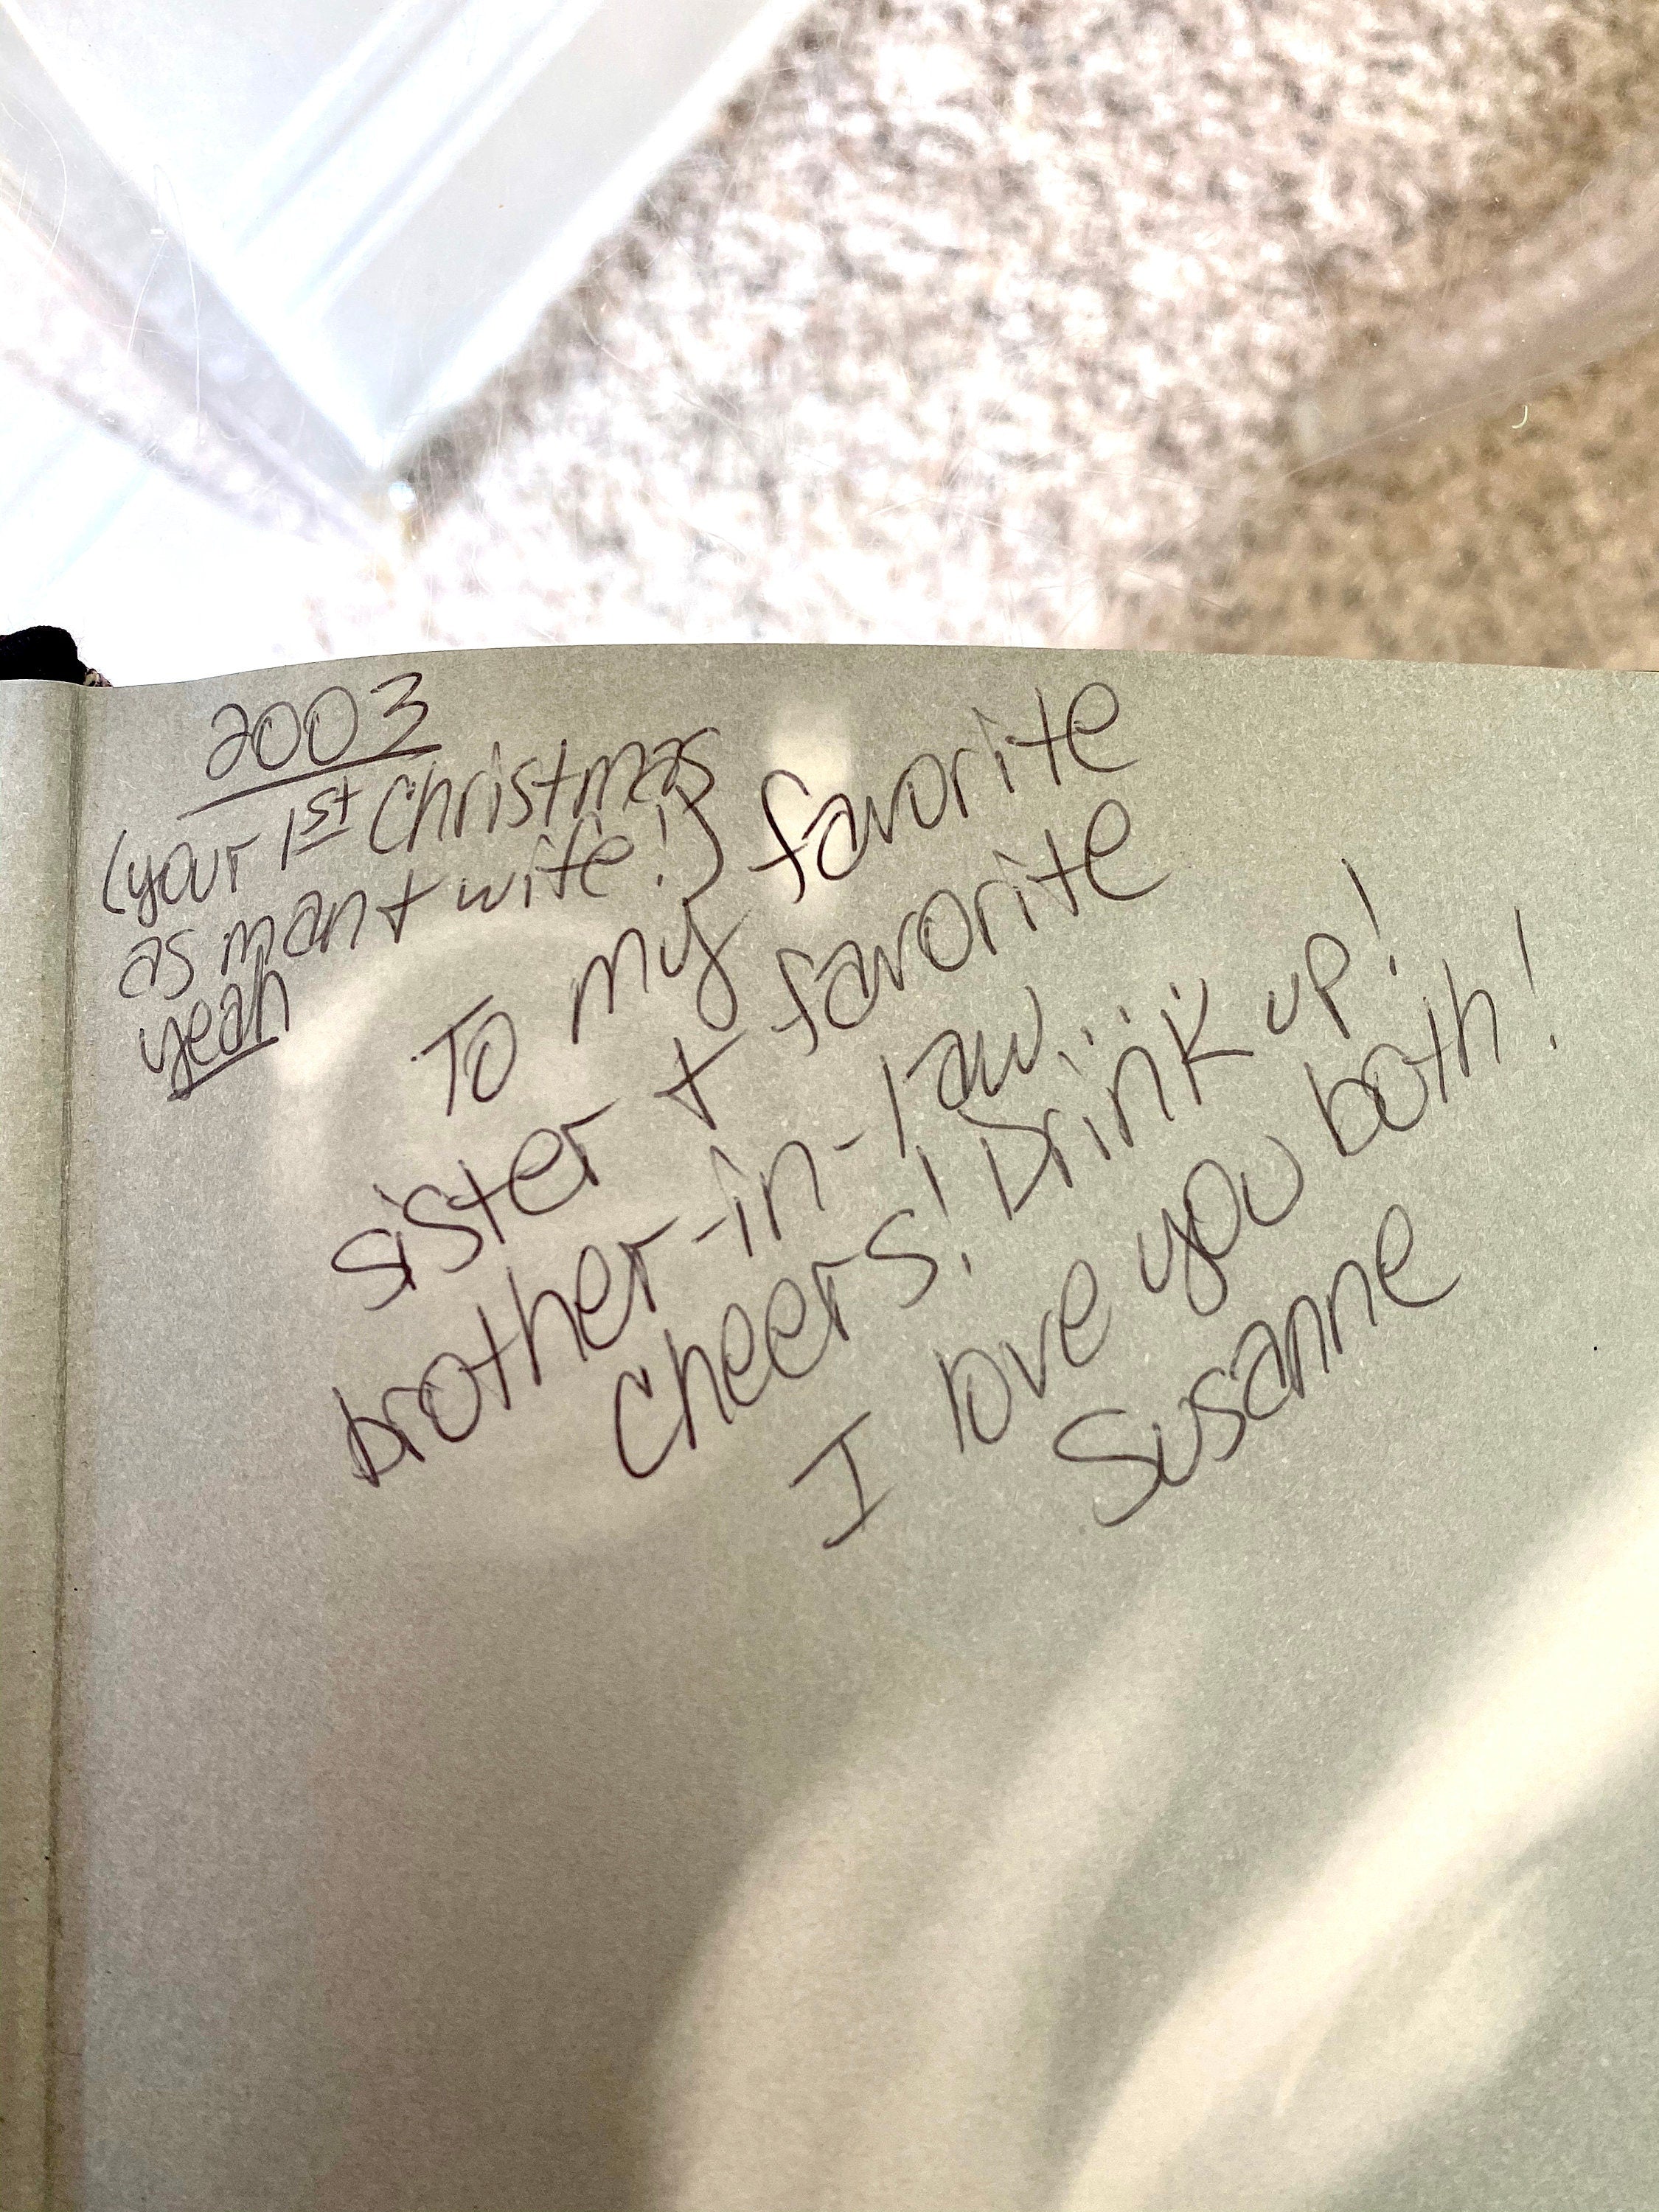 2003
(your 1st Christmas
as man + wife!)
yeah
To my favorite
sister + favorite
brother-in-law...
Cheers! Drink up!
I love you both!
Susanne